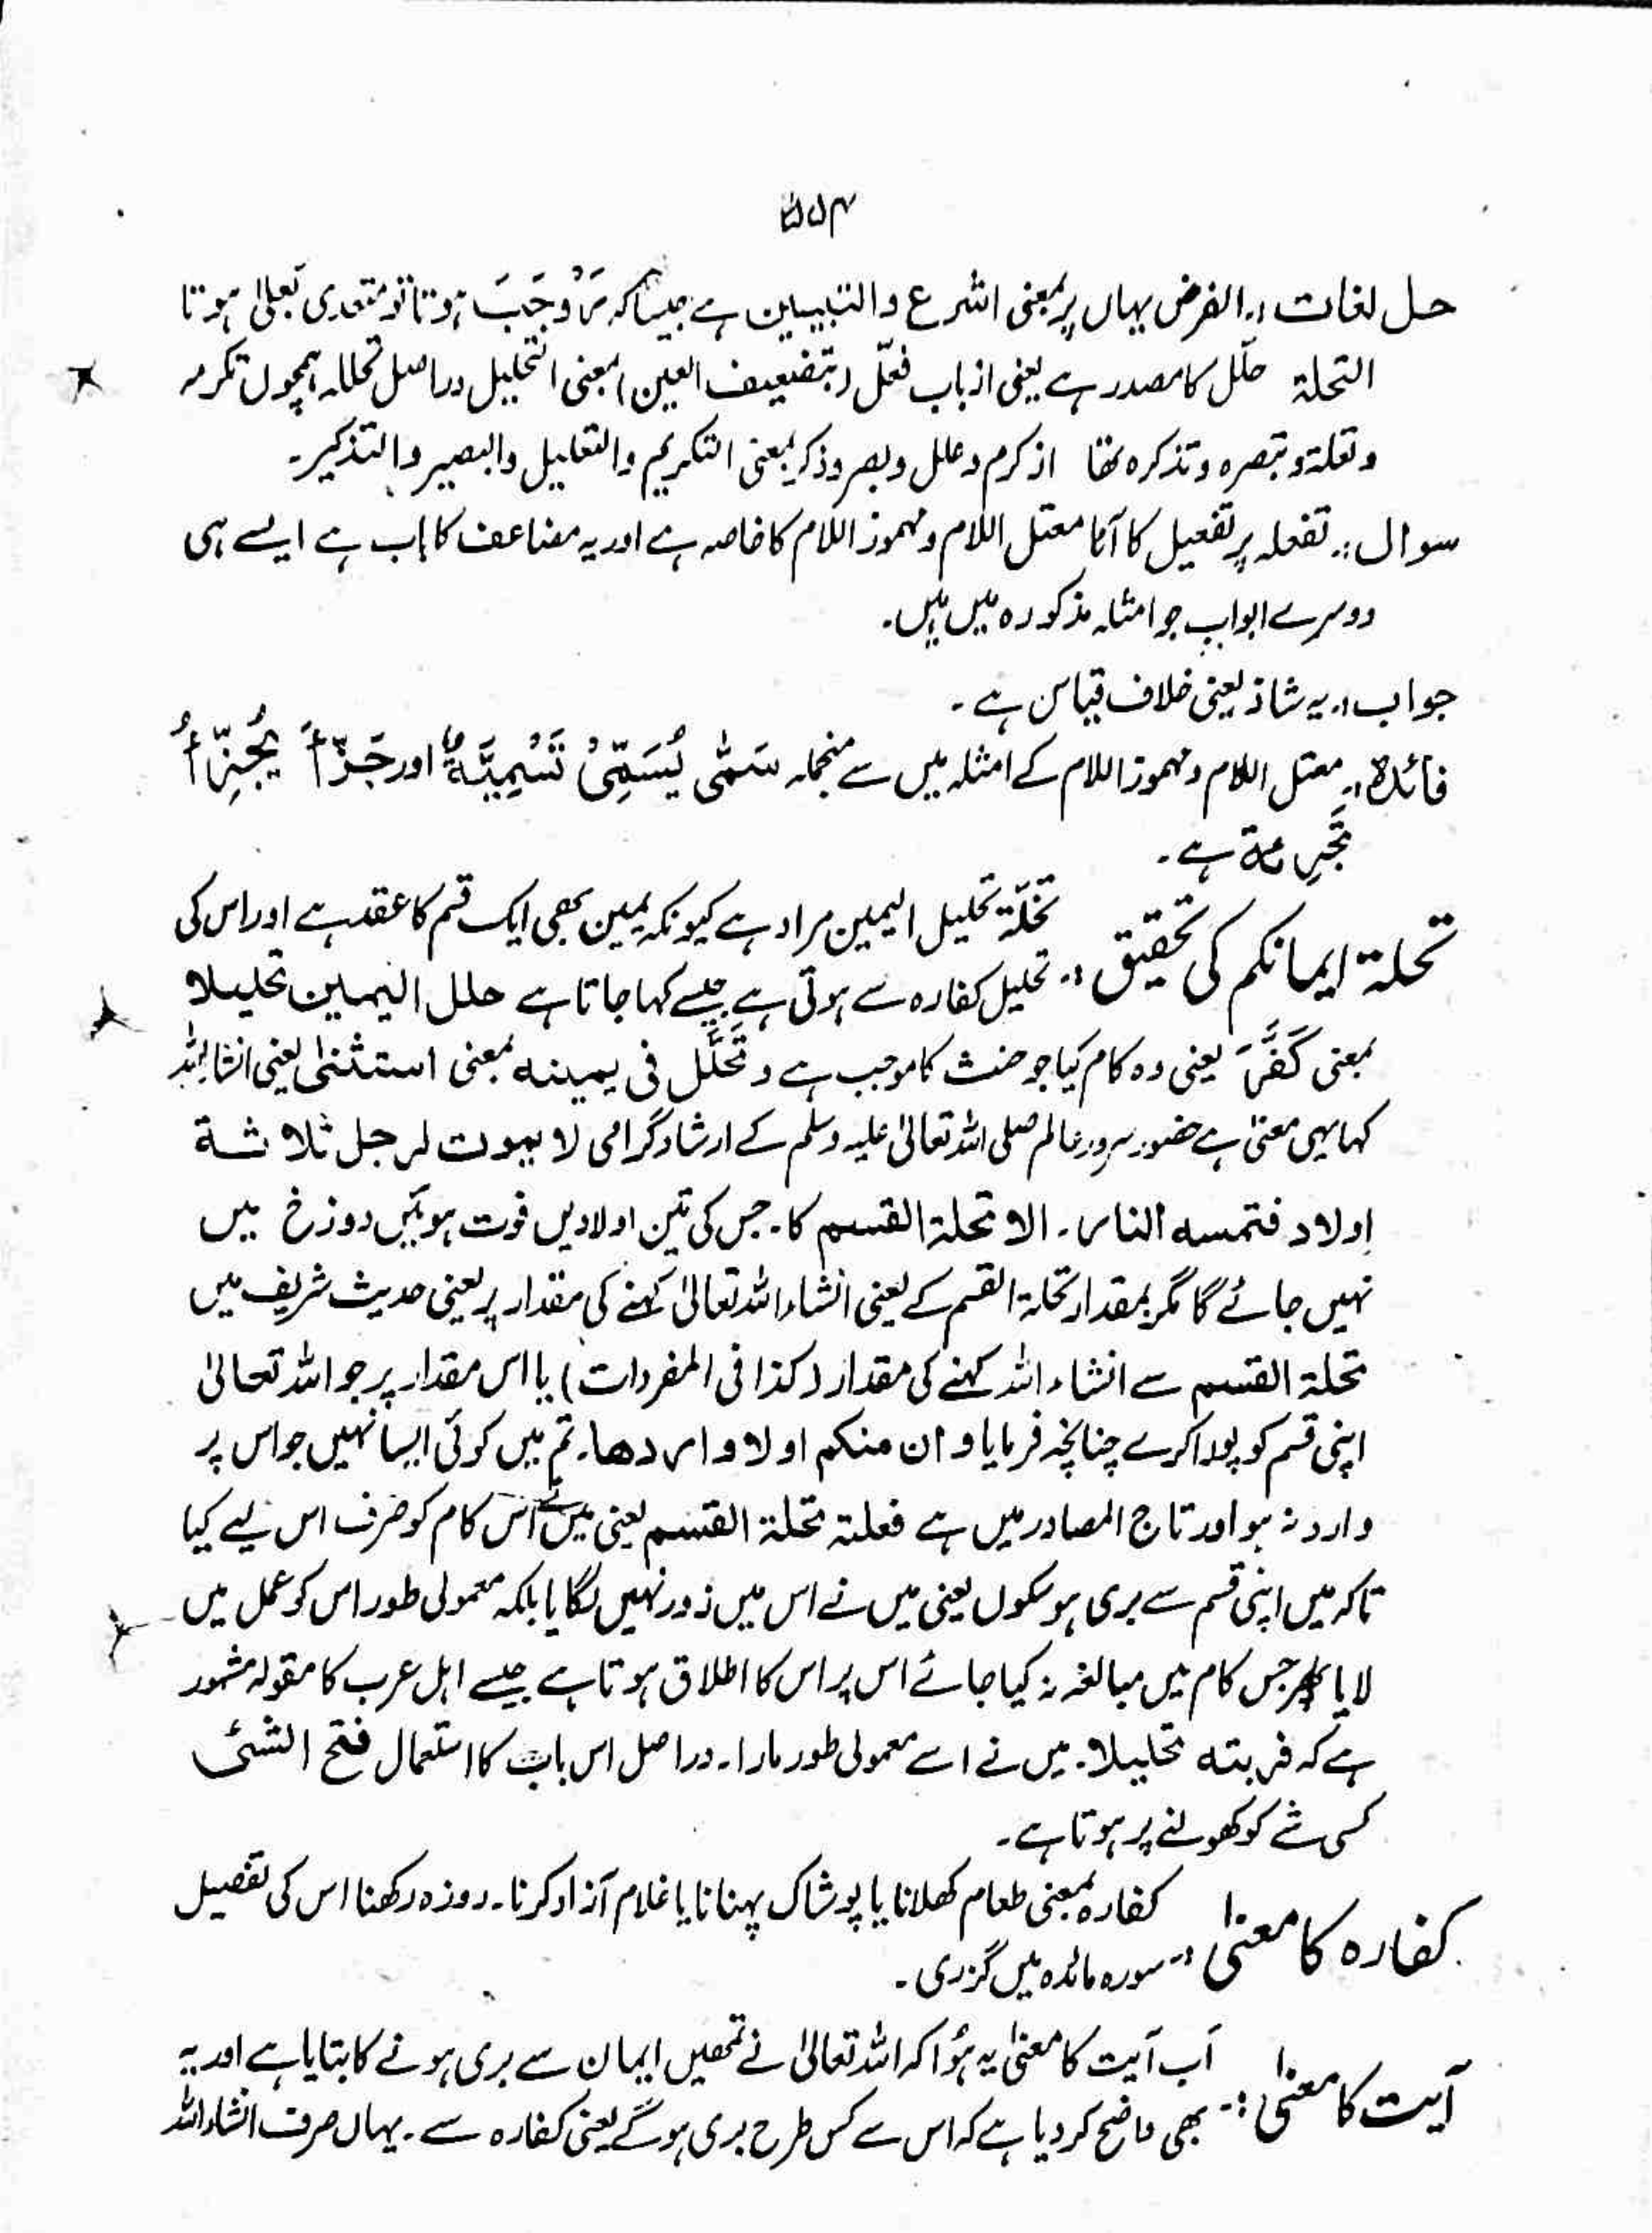 ۵۵۴
حل لغات :۔ الفرض یہاں پر بمعنی الشرع والتبیین ہے جیسا کہ وَجَبَ ہوتا تو متعدی بعلیٰ ہوتا
التحلة حلّل کا مصدر ہے یعنی از باب فعّل (بتضعیف العین) بمعنی التحلیل دراصل تحللہ ہمچوں تکرمہ
وتعلة وتبصرہ وتذکرہ تھا از کرم وعلل وبصر وذکر بمعنی التکریم والتعلیل والبصیر والتذکیر۔
سوال :۔ تفعلہ پر تفعیل کا آنا معتل اللام ومہموز اللام کا خاصہ ہے اور یہ مضاعف کا باب ہے ایسے ہی
دوسرے ابواب جو امثلہ مذکورہ میں ہیں۔
جواب :۔ یہ شاذ یعنی خلاف قیاس ہے۔
فائدہ :۔ معتل اللام ومہموز اللام کے امثلہ میں سے منجملہ سَمّٰی یُسَمِّیْ تَسْمِیَّةٌ اور جَزَّأَ یُجَزِّأُ
تَجْزِءة ہے۔
تحلة ایمانکم کی تحقیق :۔ تَحِلَّة تحلیل الیمین مراد ہے کیونکہ یمین بھی ایک قسم کا عقد ہے اور اس کی
تحلیل کفارہ سے ہوتی ہے جیسے کہا جاتا ہے حلل الیمین تحلیلا
بمعنی کَفَّرَ یعنی وہ کام کیا جو حنث کا موجب ہے و تَحَلَّل فی یمینہ بمعنی استثنیٰ یعنی انشاءاللہ
کہا یہی معنیٰ ہے حضور سرور عالم صلی اللہ تعالیٰ علیہ وسلم کے ارشاد گرامی لا یموت لرجل ثلاثة
اولاد فتمسه النار۔ الا تحلة القسم کا۔ جس کی تین اولادیں فوت ہوئیں دوزخ میں
نہیں جائے گا مگر بمقدار تحلة القسم کے یعنی انشاء اللہ تعالیٰ کہنے کی مقدار پر یعنی حدیث شریف میں
تحلة القسم سے انشاء اللہ کہنے کی مقدار (کذا فی المفردات) یا اس مقدار پر جو اللہ تعالیٰ
اپنی قسم کو پورا کرے چنانچہ فرمایا و ان منکم اولا واردھا۔ تم میں کوئی ایسا نہیں جو اس پر
وارد نہ ہو اور تاج المصادر میں ہے فعلتہ تحلة القسم یعنی میں نے اس کام کو صرف اس لیے کیا
تاکہ میں اپنی قسم سے بری ہو سکوں یعنی میں نے اس میں زور نہیں لگایا بلکہ معمولی طور اس کو عمل میں
لایا پھر جس کام میں مبالغہ نہ کیا جائے اس پر اس کا اطلاق ہوتا ہے جیسے اہل عرب کا مقولہ مشہور
ہے کہ ضربته تحلیلا۔ میں نے اسے معمولی طور مارا۔ دراصل اس باب کا استعمال فتح الشئ
کسی شے کو کھولنے پر ہوتا ہے۔
کفارہ کا معنیٰ :۔ کفارہ بمعنی طعام کھلانا یا پوشاک پہنانا یا غلام آزاد کرنا۔ روزہ رکھنا اس کی تفصیل
سورہ مائدہ میں گزری۔
آیت کا معنیٰ :۔ اَب آیت کا معنیٰ یہ ہُوا کہ اللہ تعالیٰ نے تمھیں ایمان سے بری ہونے کا بتایا ہے اور یہ
بھی واضح کر دیا ہے کہ اس سے کس طرح بری ہو گے یعنی کفارہ سے۔ یہاں صرف انشاءاللہ